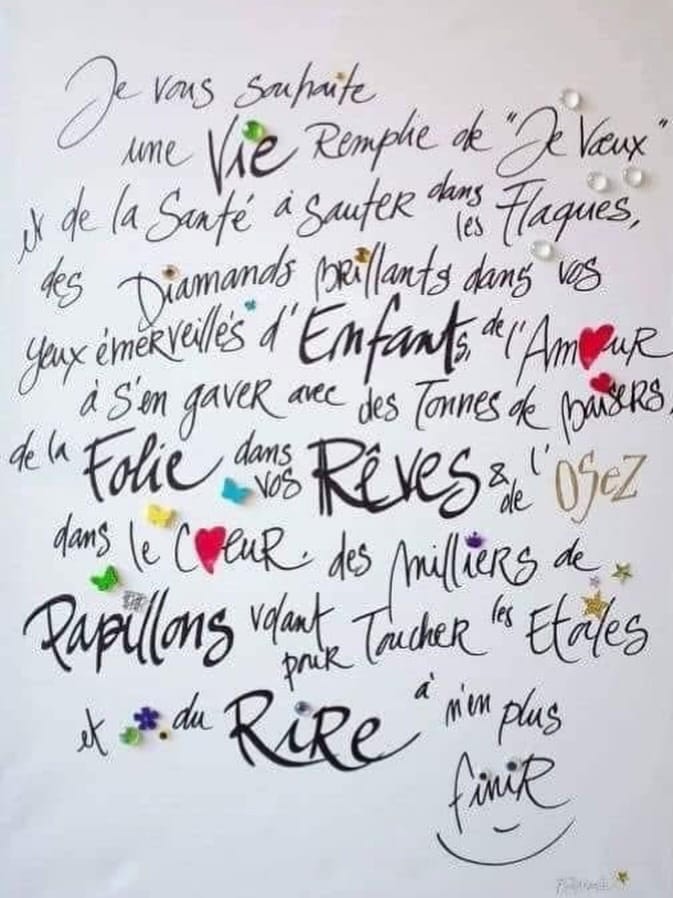 Je vous souhaite
une Vie Remplie de "Je Vœux"
et de la Santé à Sauter dans les Flaques,
des Diamands brillants dans vos
yeux émerveillés d'Enfants, de l'Amour
à s'en gaver avec des Tonnes de baisers,
de la Folie dans vos Rêves & de l'OSEZ
dans le Cœur. des milliers de
Papillons volant pour Toucher les Etoiles
et du RiRe à n'en plus
finiR